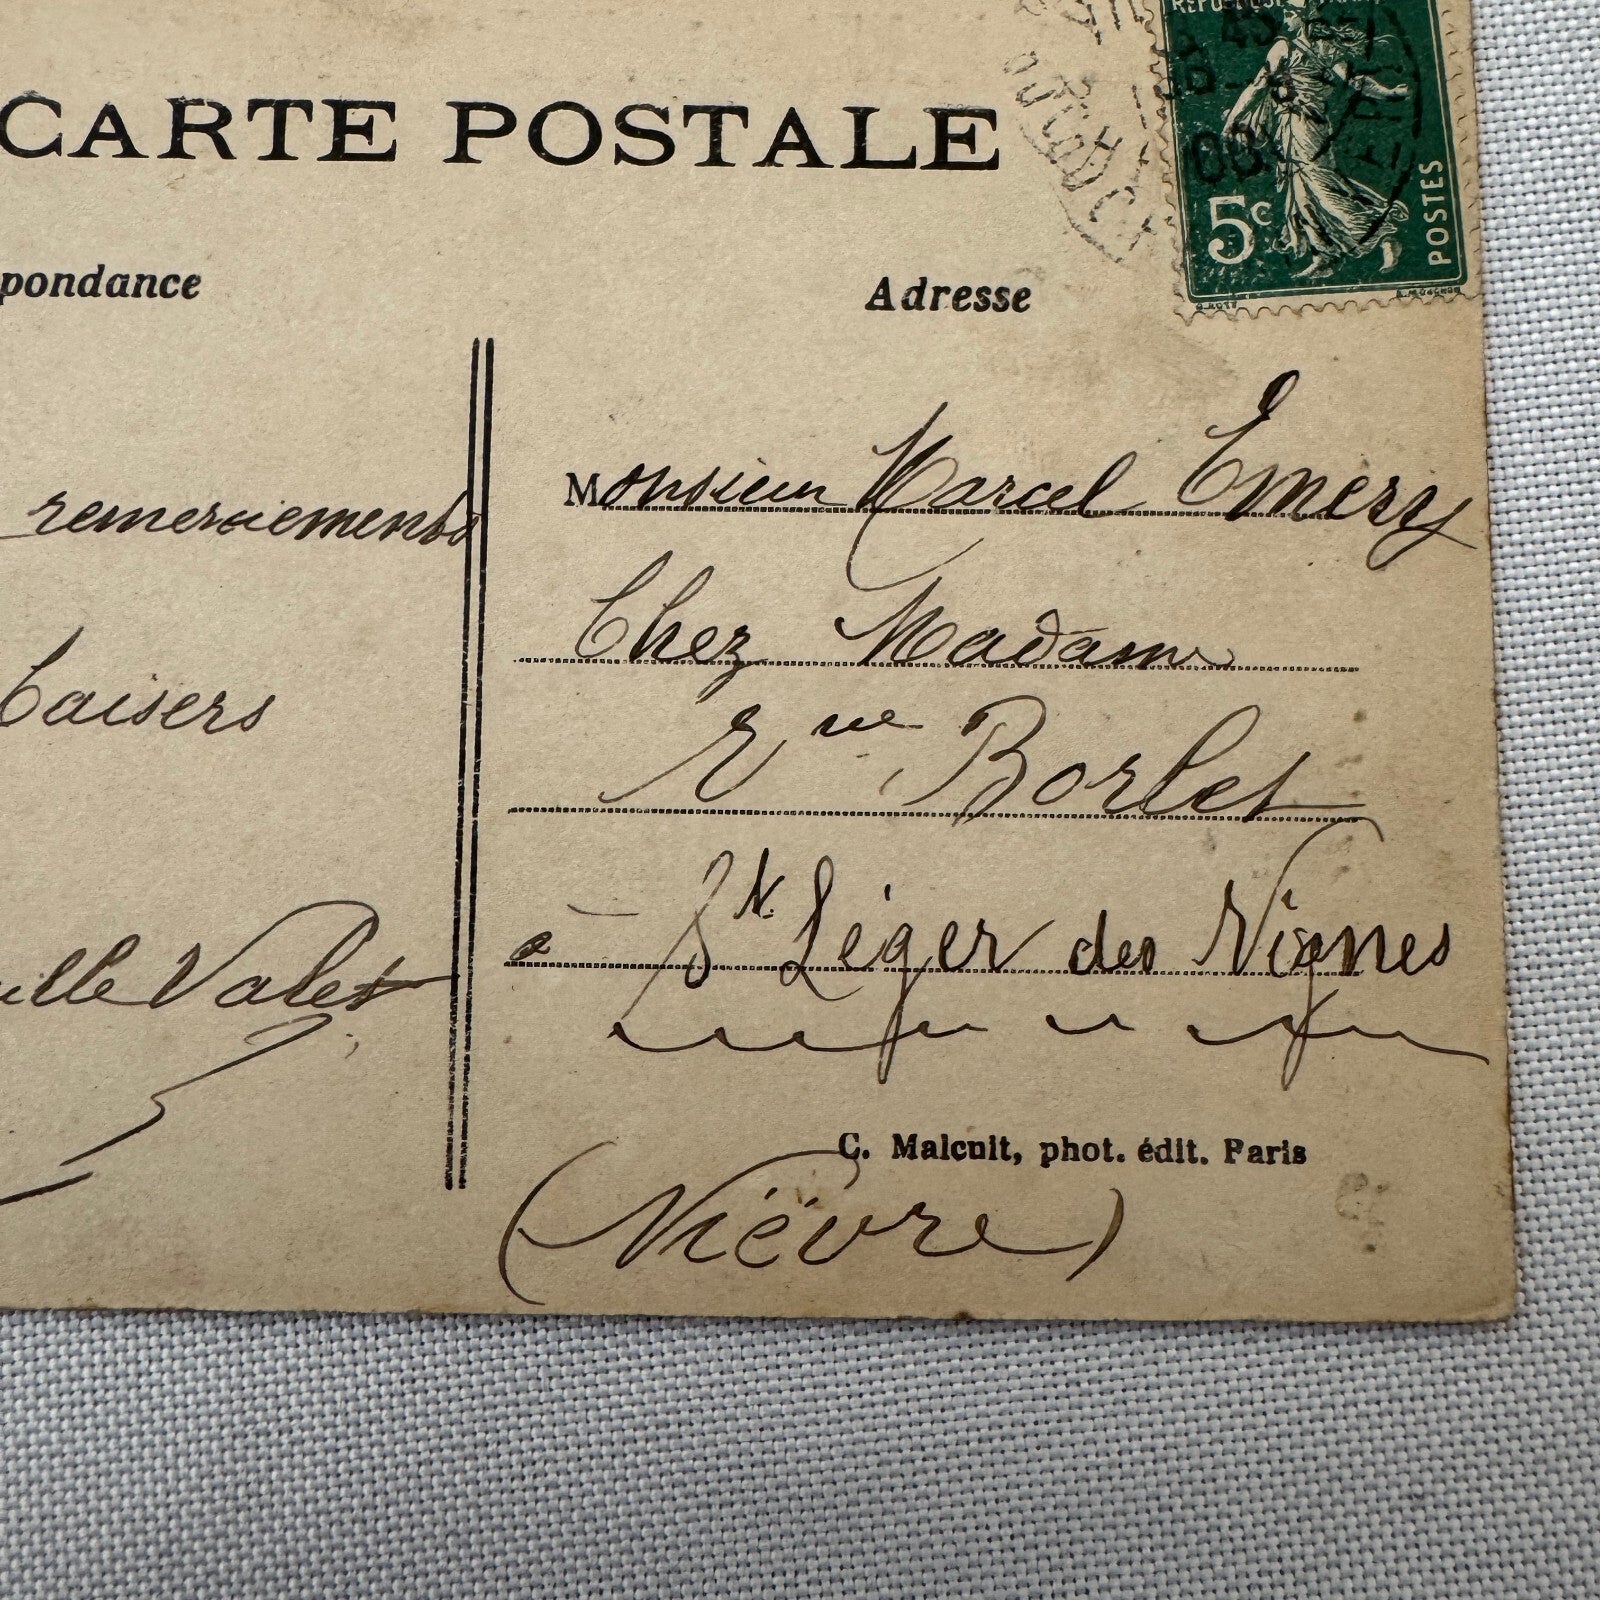 CARTE POSTALE
5c
POSTES
pondance
Adresse
remerciements
baisers
ille Valet
Monsieur Marcel Emery
Chez Madame
Vve Borlet
à St Léger des Vignes
C. Malcuit, phot. édit. Paris
(Nièvre)